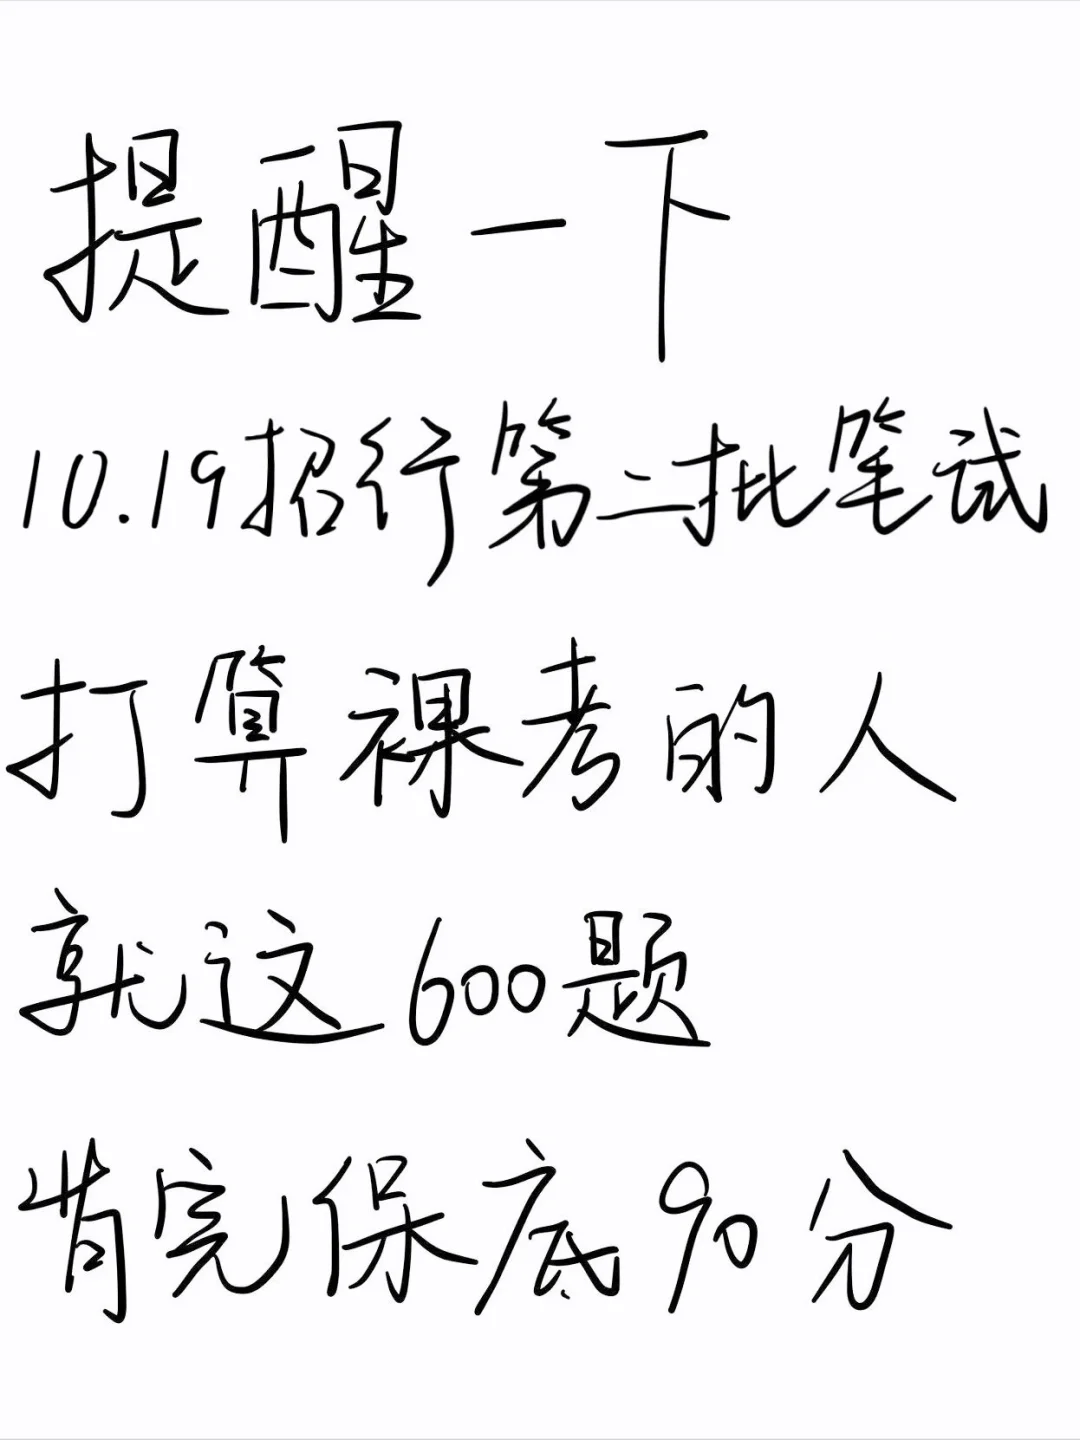 提醒一下
10.19招行第二批笔试
打算裸考的人
就这600题
背完保底90分